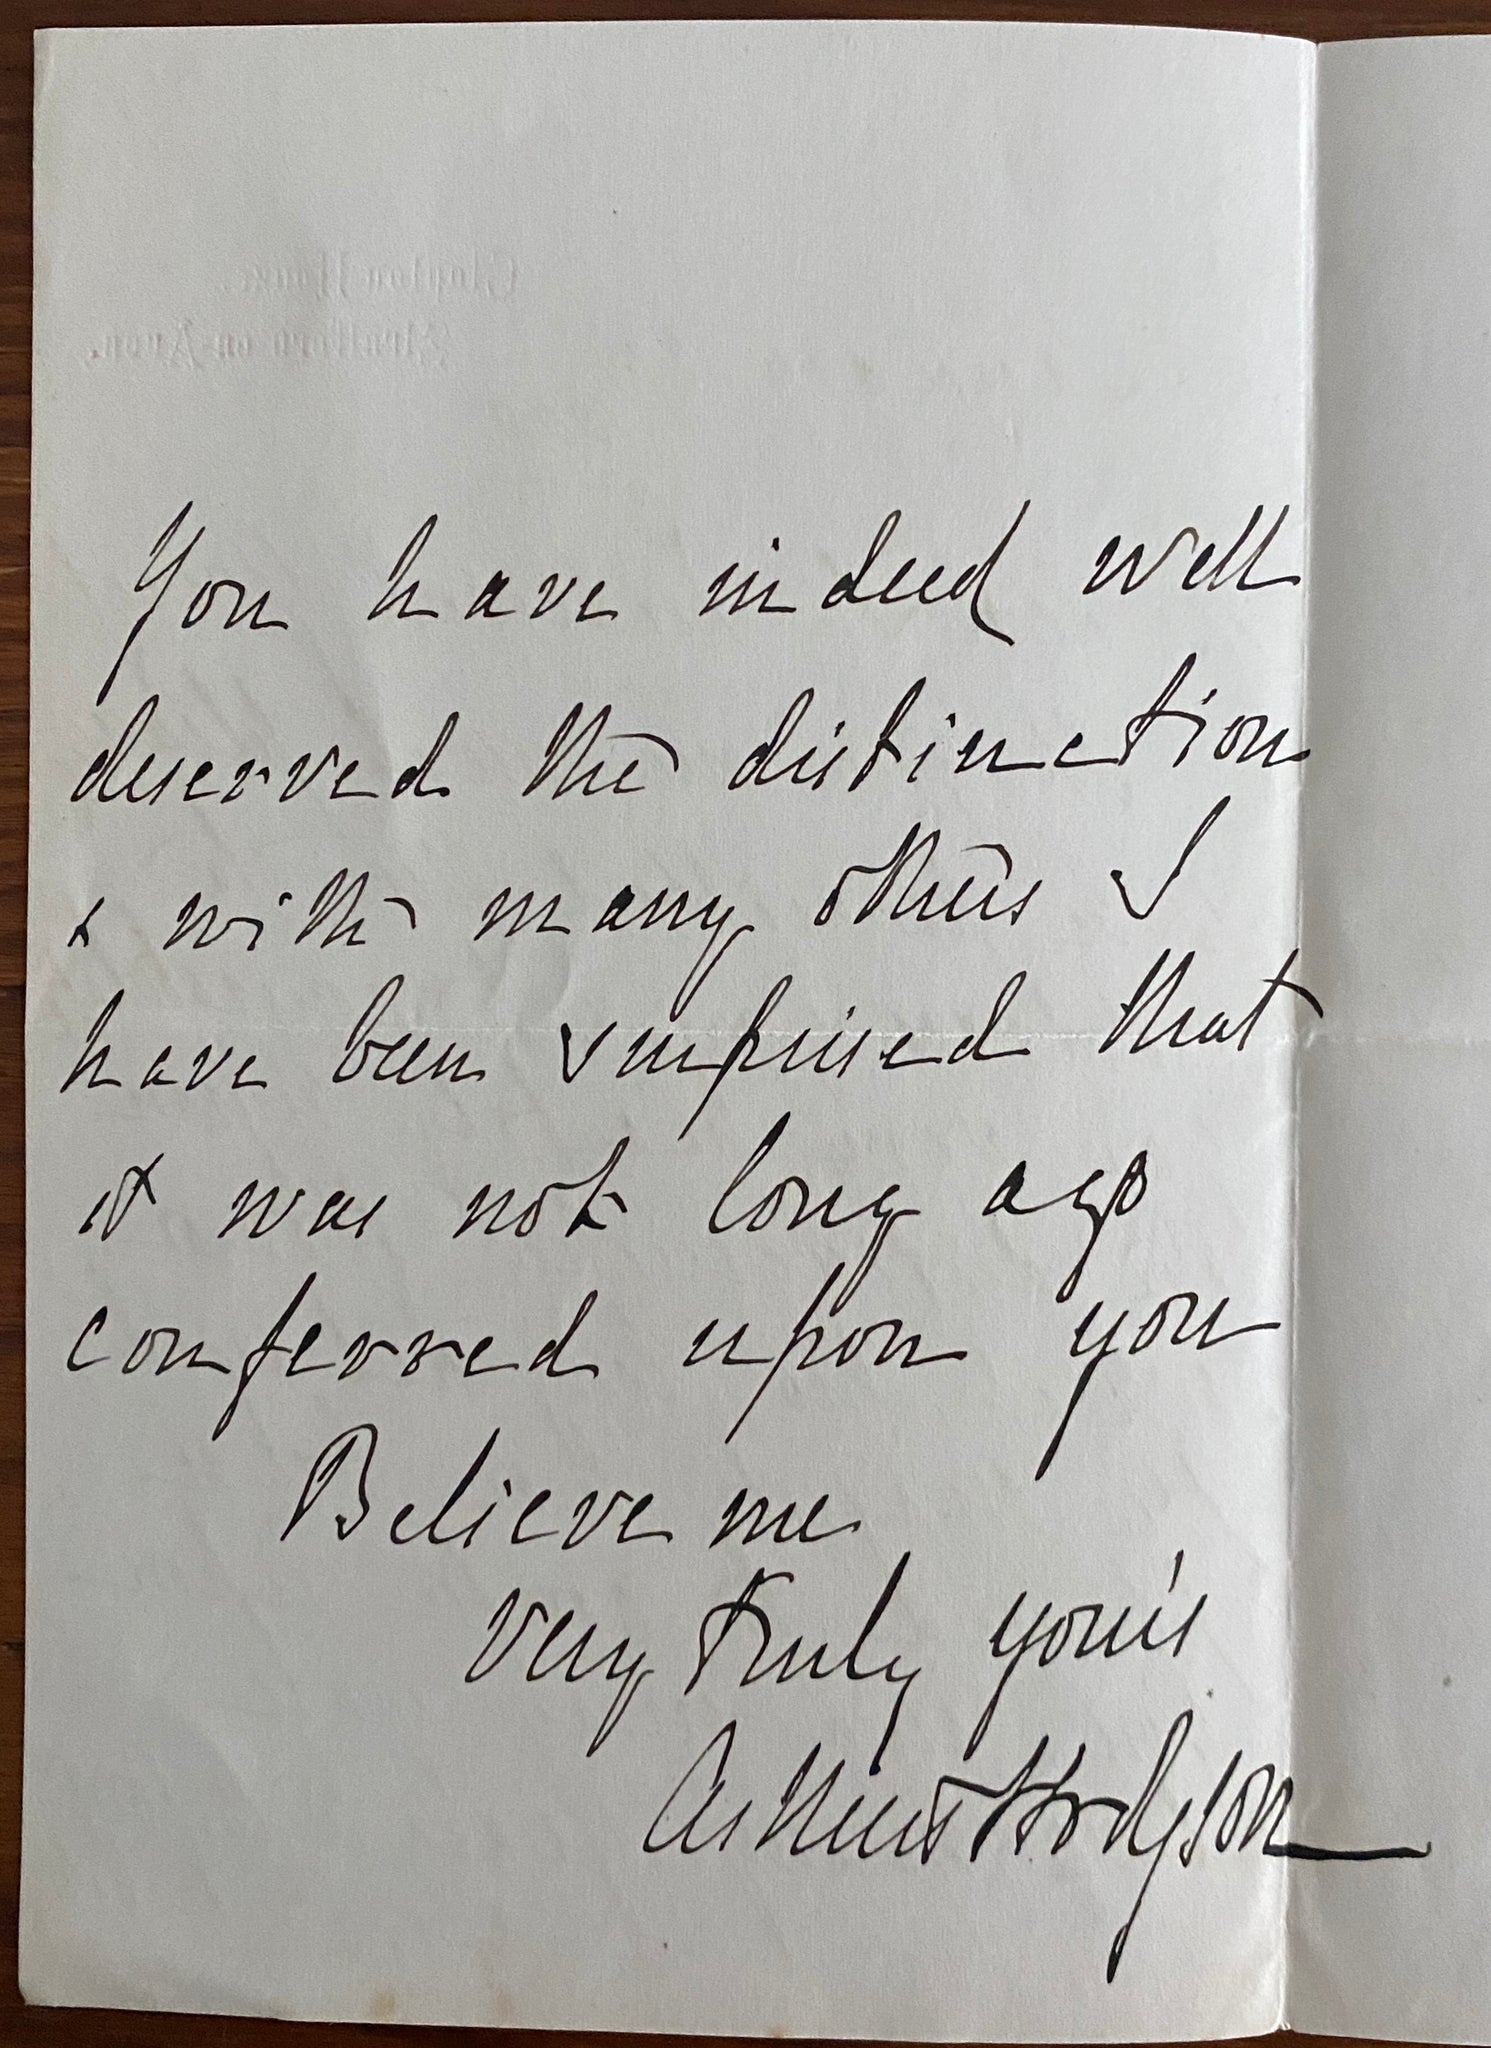 Clopton House.
Stratford on Avon.
You have indeed well
deserved the distinction
& with many others I
have been surprised that
it was not long ago
conferred upon you
Believe me
very truly yours
Arthur Hodgson